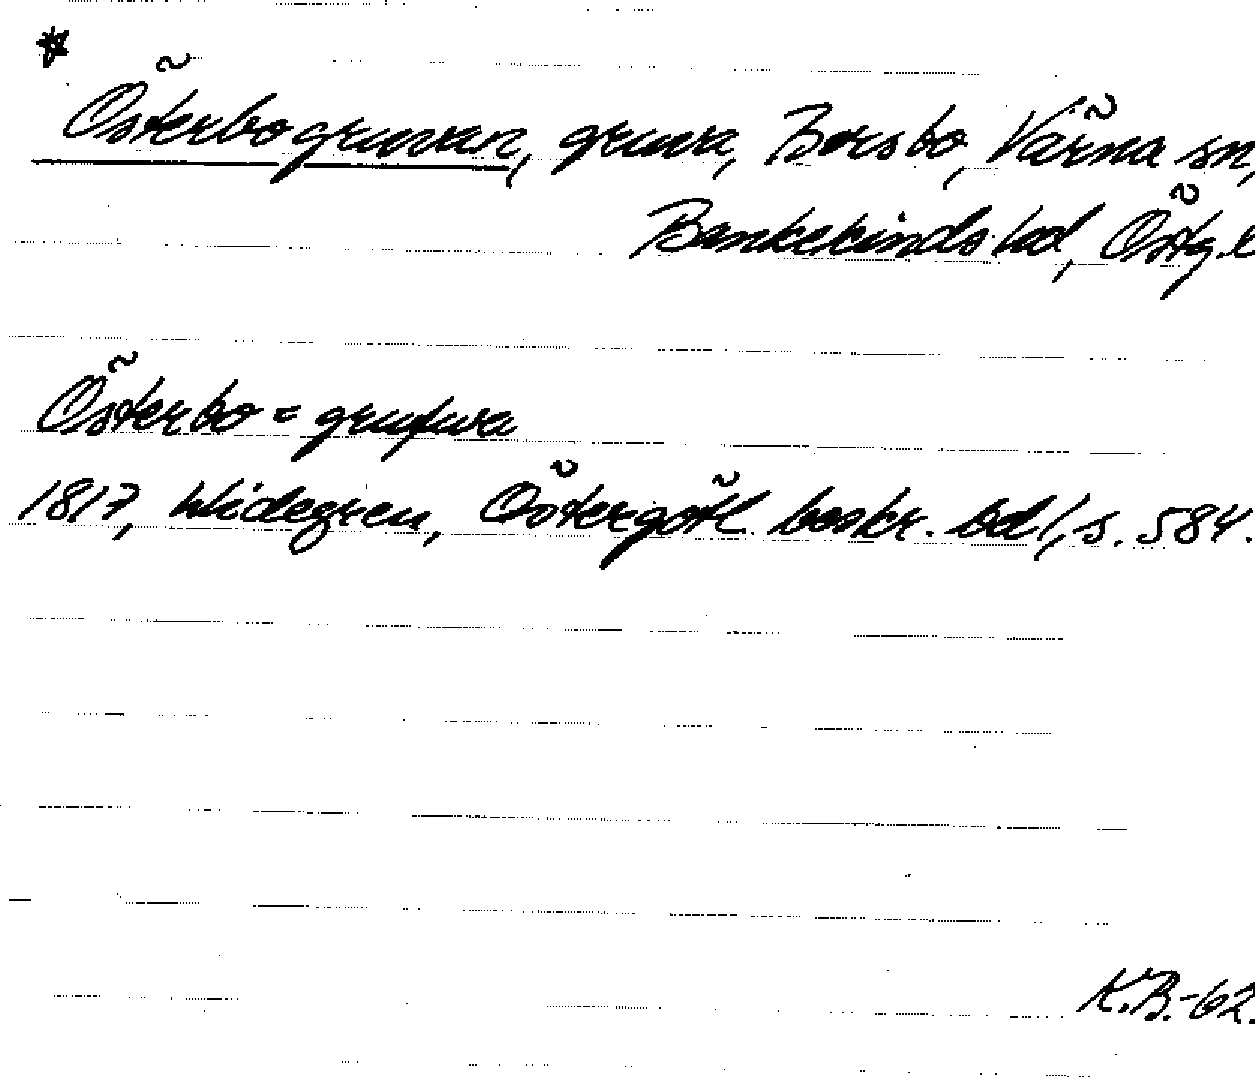 *
Österbogruvan, gruva, Borsbo, Värna sn,
Bankekinds hd, Östg. l
Österbo=grufwa
1817, Widegren, Östergötl. beskr. bd 1, s. 584.
K.B.-62.